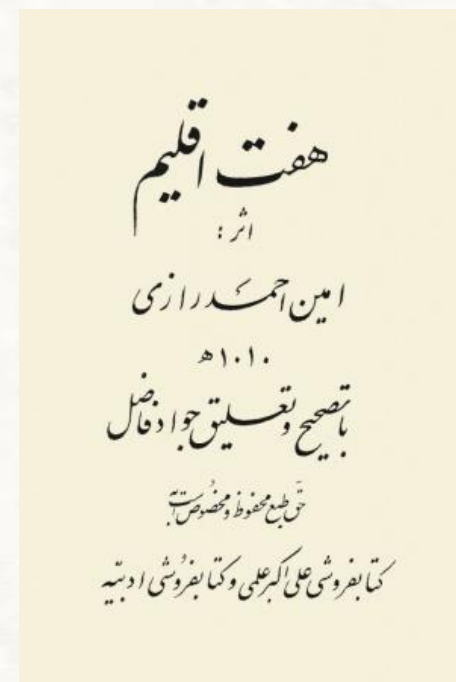 هفت اقلیم
اثر :
امین احمد رازی
۱۰۱۰ ه
با تصحیح و تعلیق جواد فاضل
حق طبع محفوظ و مخصوص است به
کتابفروشی علی اکبر علمی و کتابفروشی ادبیّه